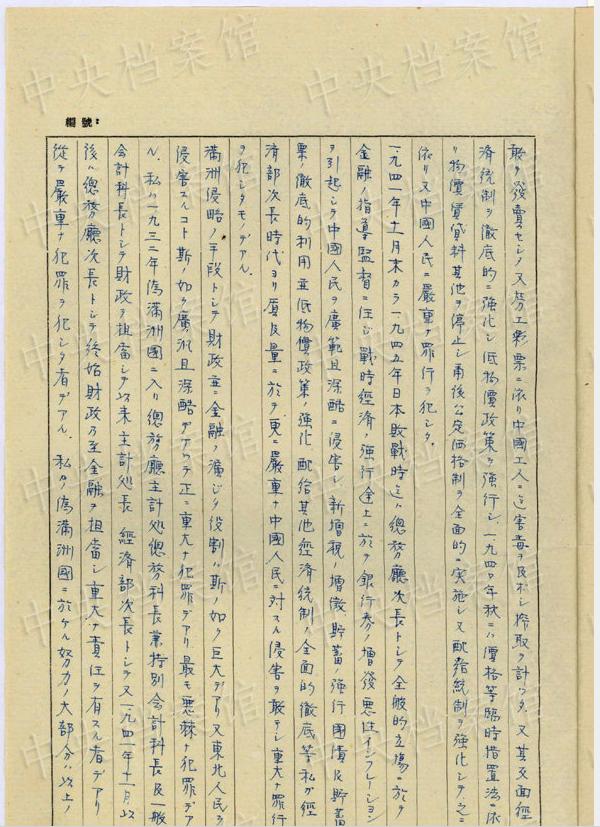 中央档案馆
中央档案馆
編號:
敢テ發賣セシメ又勞工彩票ニ依リ中國工人ニ迄害毒ヲ及ボシ搾取ヲ計ツタ。又其反面經
濟統制ヲ徹底的ニ強化シ低物價政策ヲ強行シ、一九四〇年秋ニハ價格等臨時措置法ニ依
リ物價賃貸料其他ヲ停止シ爾後公定価格制ヲ全面的ニ実施シ又配給統制ヲ強化シテ之ニ
依リ又中國人民ニ嚴重ナ罪行ヲ犯シタ。
一九四一年十一月末カラ一九四五年日本敗戰時迄ハ總務廳次長トシテ全般的立場ニ於テ
金融ノ指導監督ニ任ジ戰時經濟ノ強行途上ニ於テ銀行券ノ增發悪性インフレーション
ヲ引起シテ中國人民ヲ廣範且深酷ニ侵害シ新增税ノ增徴、貯蓄強行國債及貯蓄
票ノ徹底的利用並低物價政策ノ強化配給其他經濟統制ノ全面的徹底等私ガ經
濟部次長時代ヨリ質及量ニ於テ更ニ嚴重ナ中國人民ニ対スル侵害ヲ敢テシ重大ナ罪行
ヲ犯シタモノデアル。
滿洲侵略ノ手段トシテ財政並ニ金融ノ演ジタ役割ハ斯ノ如ク巨大デアリ又東北人民ヲ
侵害スルコト斯ノ如ク廣汎且深酷デアツテ正ニ重大ナ犯罪デアリ最モ悪棘ナ犯罪デア
ル。私ハ一九三二年偽滿洲國ニ入リ總務廳主計処總務科長兼特別会計科長及一般
会計科長トシテ財政ヲ担當シテ以来主計処長、經濟部次長トシテ又一九四一年十一月以
後ハ總務廳次長トシテ終始財政乃至金融ヲ担當シ重大ナ責任ヲ有スル者デアリ
從テ嚴重ナ犯罪ヲ犯シタ者デアル。私ノ偽滿洲國ニ於ケル努力ノ大部分ハ以上ノ